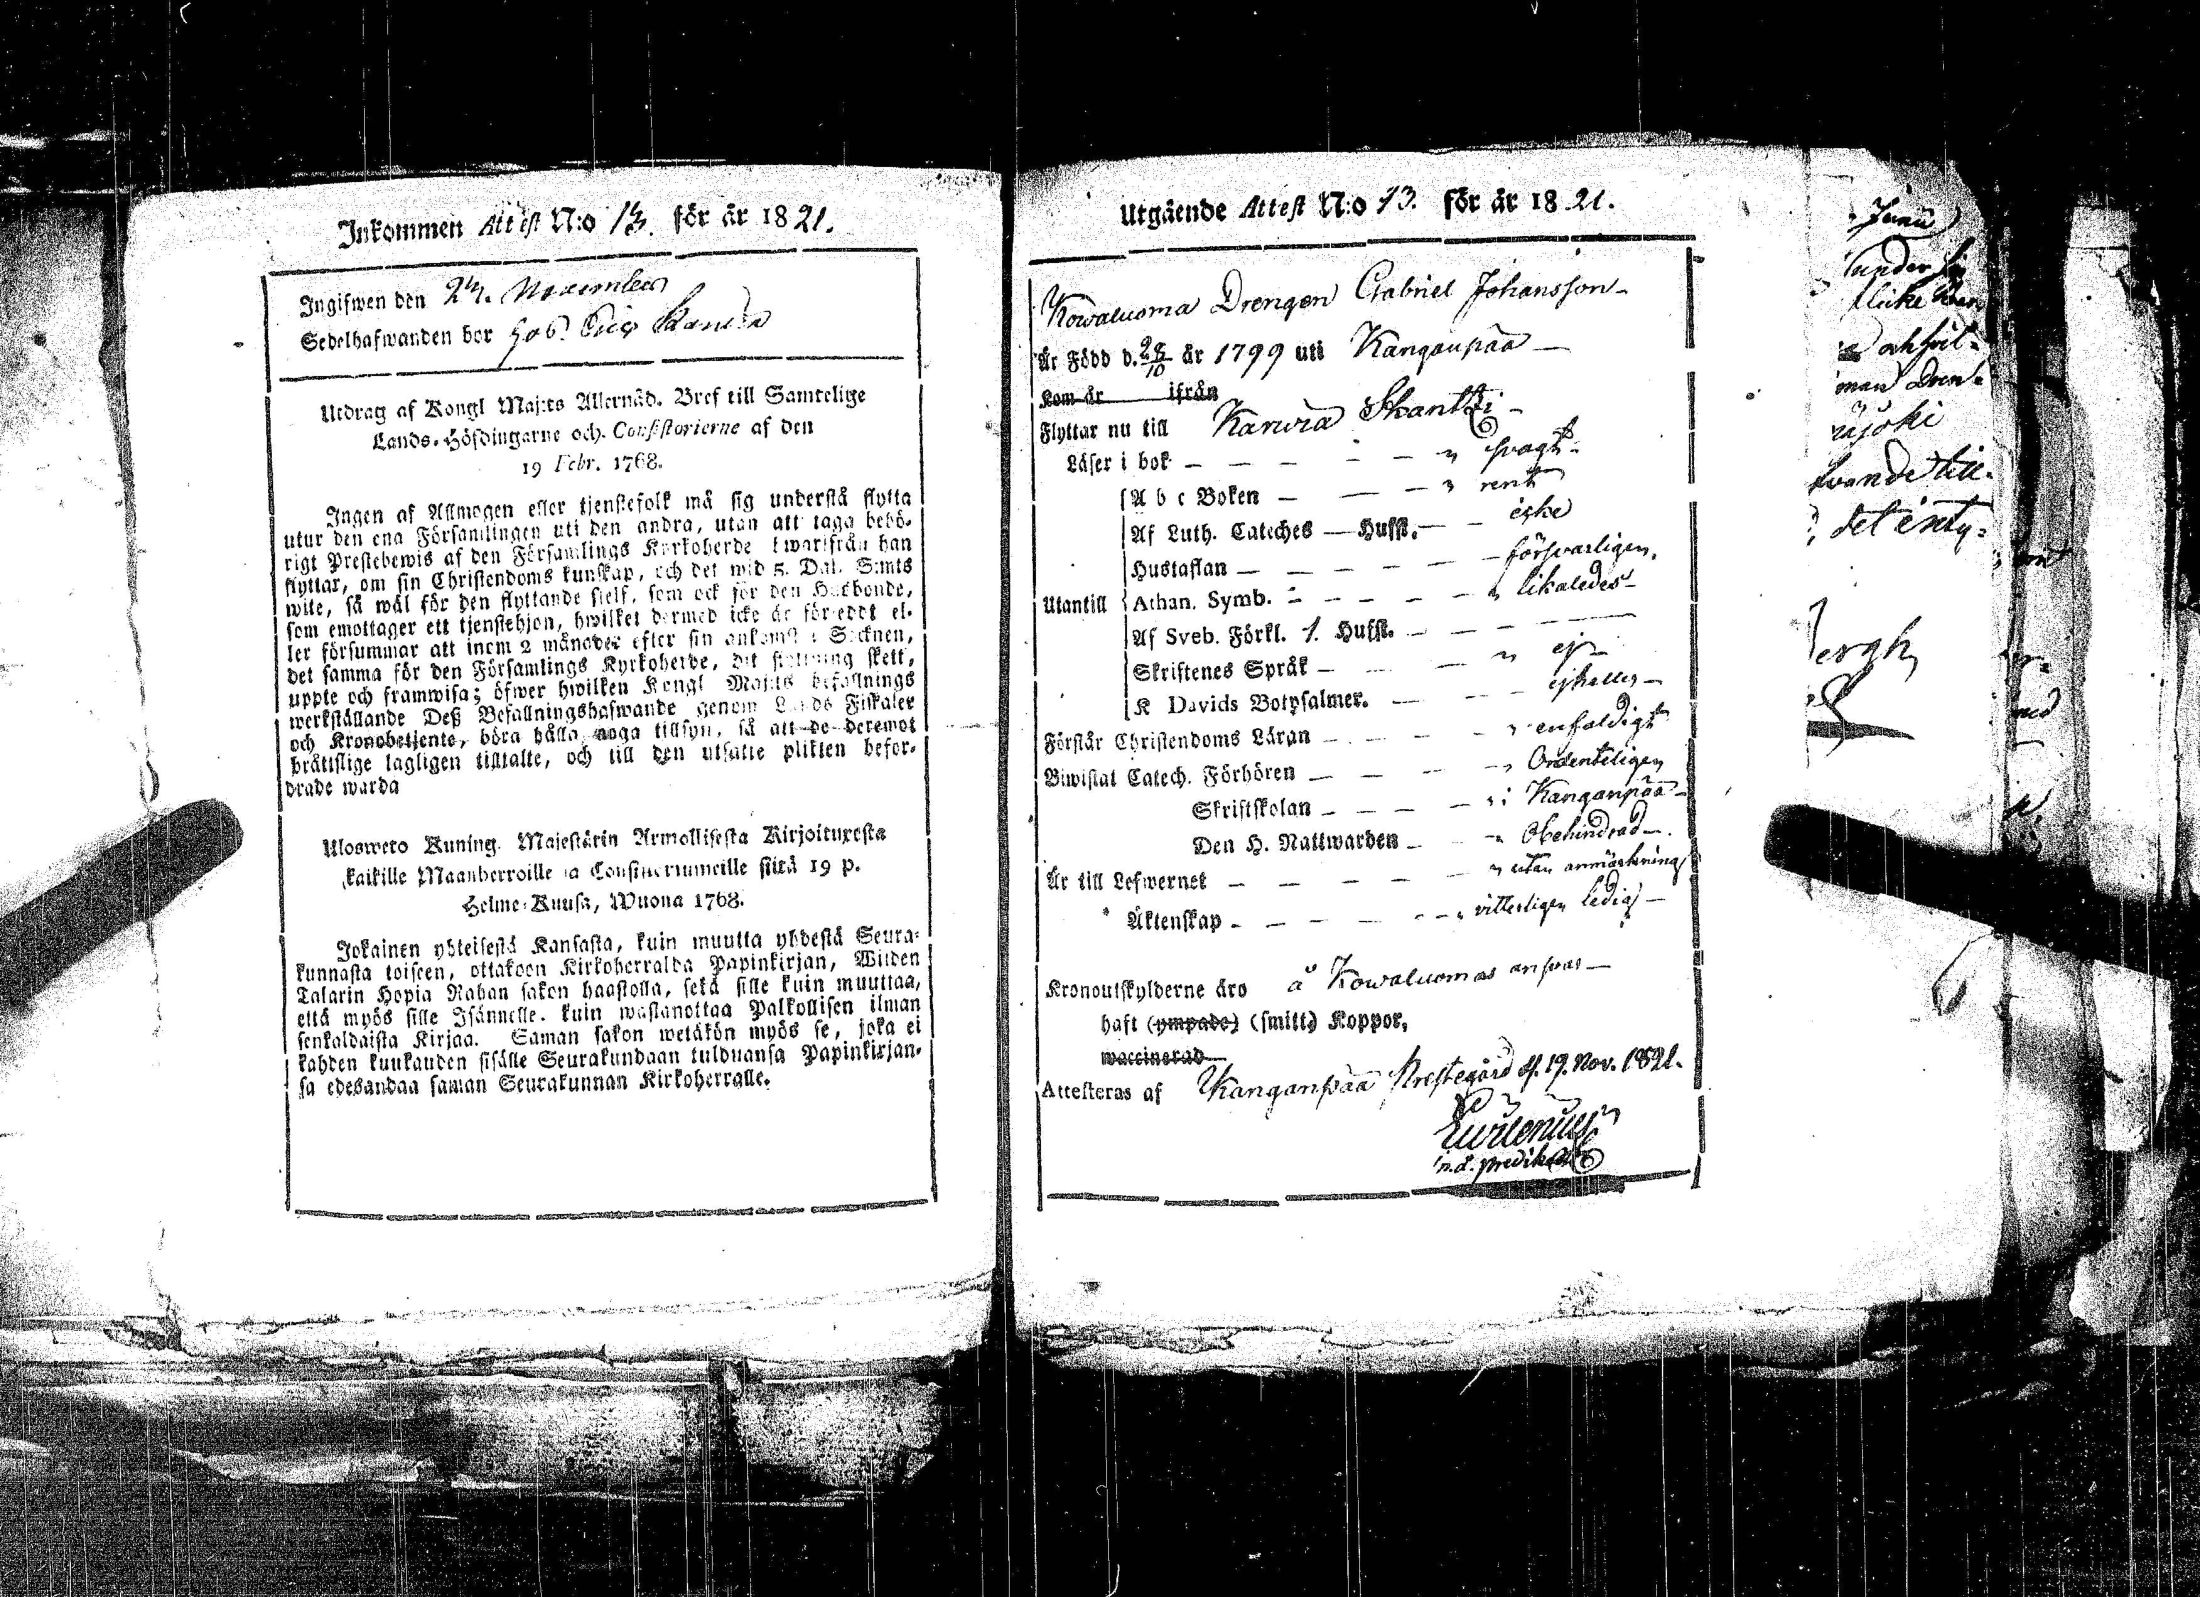 Inkommen Attest N:o 13. för år 1821.
Ingifwen den 24. November
Sedelhafwanden bor
Utdrag af Kongl Maj:ts Allernåd. Bref till Samtelige
Lands-Höfdingarne och Consistorierne af den
19 Febr. 1768.
Ingen af Allmogen eller tjenstefolk må sig understå flytta
utur den ena Församlingen uti den andra, utan att taga behö-
rigt Prestebewis af den Församlings Kyrkoherde hwarifrån han
flyttar, om sin Christendoms kunskap, och det wid 5. Dal. S:mts
wite, så wäl för den flyttande sielf, som ock för den Husbonde,
som emottager ett tjenstehjon, hwilket dermed icke är försedt el-
ler försummar att inom 2 månader efter sin ankomst i Socknen,
det samma för den Församlings Kyrkoherde, dit flyttning skett,
uppte och framwisa; öfwer hwilken Kongl Maj:ts befallnings
werkställande Deß Befallningshafwande genom Lands Fiskaler
och Kronobetjente, böra hålla noga tillsyn, så att de deremot
bråttslige lagligen tilltalte, och till den utsatte plikten befor-
drade warda
Ulosweto Kuning. Majestärin Armollisesta Kirjoituxesta
kaikille Maanherroille ja Consistoriumeille siitä 19 p.
Helme-Kuusa, Wuona 1768.
Jokainen yhteisestä Kansasta, kuin muutta yhdestä Seura-
kunnasta toiseen, ottakoon Kirkoherralda Papinkirjan, Wiiden
Talarin Hopia Rahan sakon haastolla, sekä sille kuin muuttaa,
että myös sille Isännelle, kuin wastanottaa Palkollisen ilman
senkaldaista Kirjaa. Saman sakon wetäkön myös se, joka ei
kahden kuukauden sisälle Seurakundaan tulduansa Papinkirjan-
sa edesandaa saman Seurakunnan Kirkoherralle.
Utgående Attest N:o 13. för år 1821.
Kowaluoma Drengen Gabriel Johansson
Är Född d. 28/10 år 1799 uti Kanganpää
Kom år ifrån
Flyttar nu till Karwia Skantzi
Läser i bok svagt
A b c Boken rent
Af Luth. Cateches Husst. icke
Hustaflan försvarligen,
Utantill Athan. Symb. likaledes
Af Sveb. Förkl. 1. Husst.
Skriftenes Språk ej
K Davids Botpsalmer. ejheller
Förstår Christendoms Läran enfaldigt
Biwistat Catech. Förhören Ordenteligen
Skriftskolan i Kanganpää
Den H. Nattwarden Obehindrad
Är till Lefwernet utan anmärkning
Äktenskap vitterligen ledig
Kronoutskylderne äro å Kowaluomas answar
haft (ympade) (smitt) Koppor,
waccinerad
Attesteras af Kanganpää Prestegård d. 19. Nov. 1821.
n.d. predikant